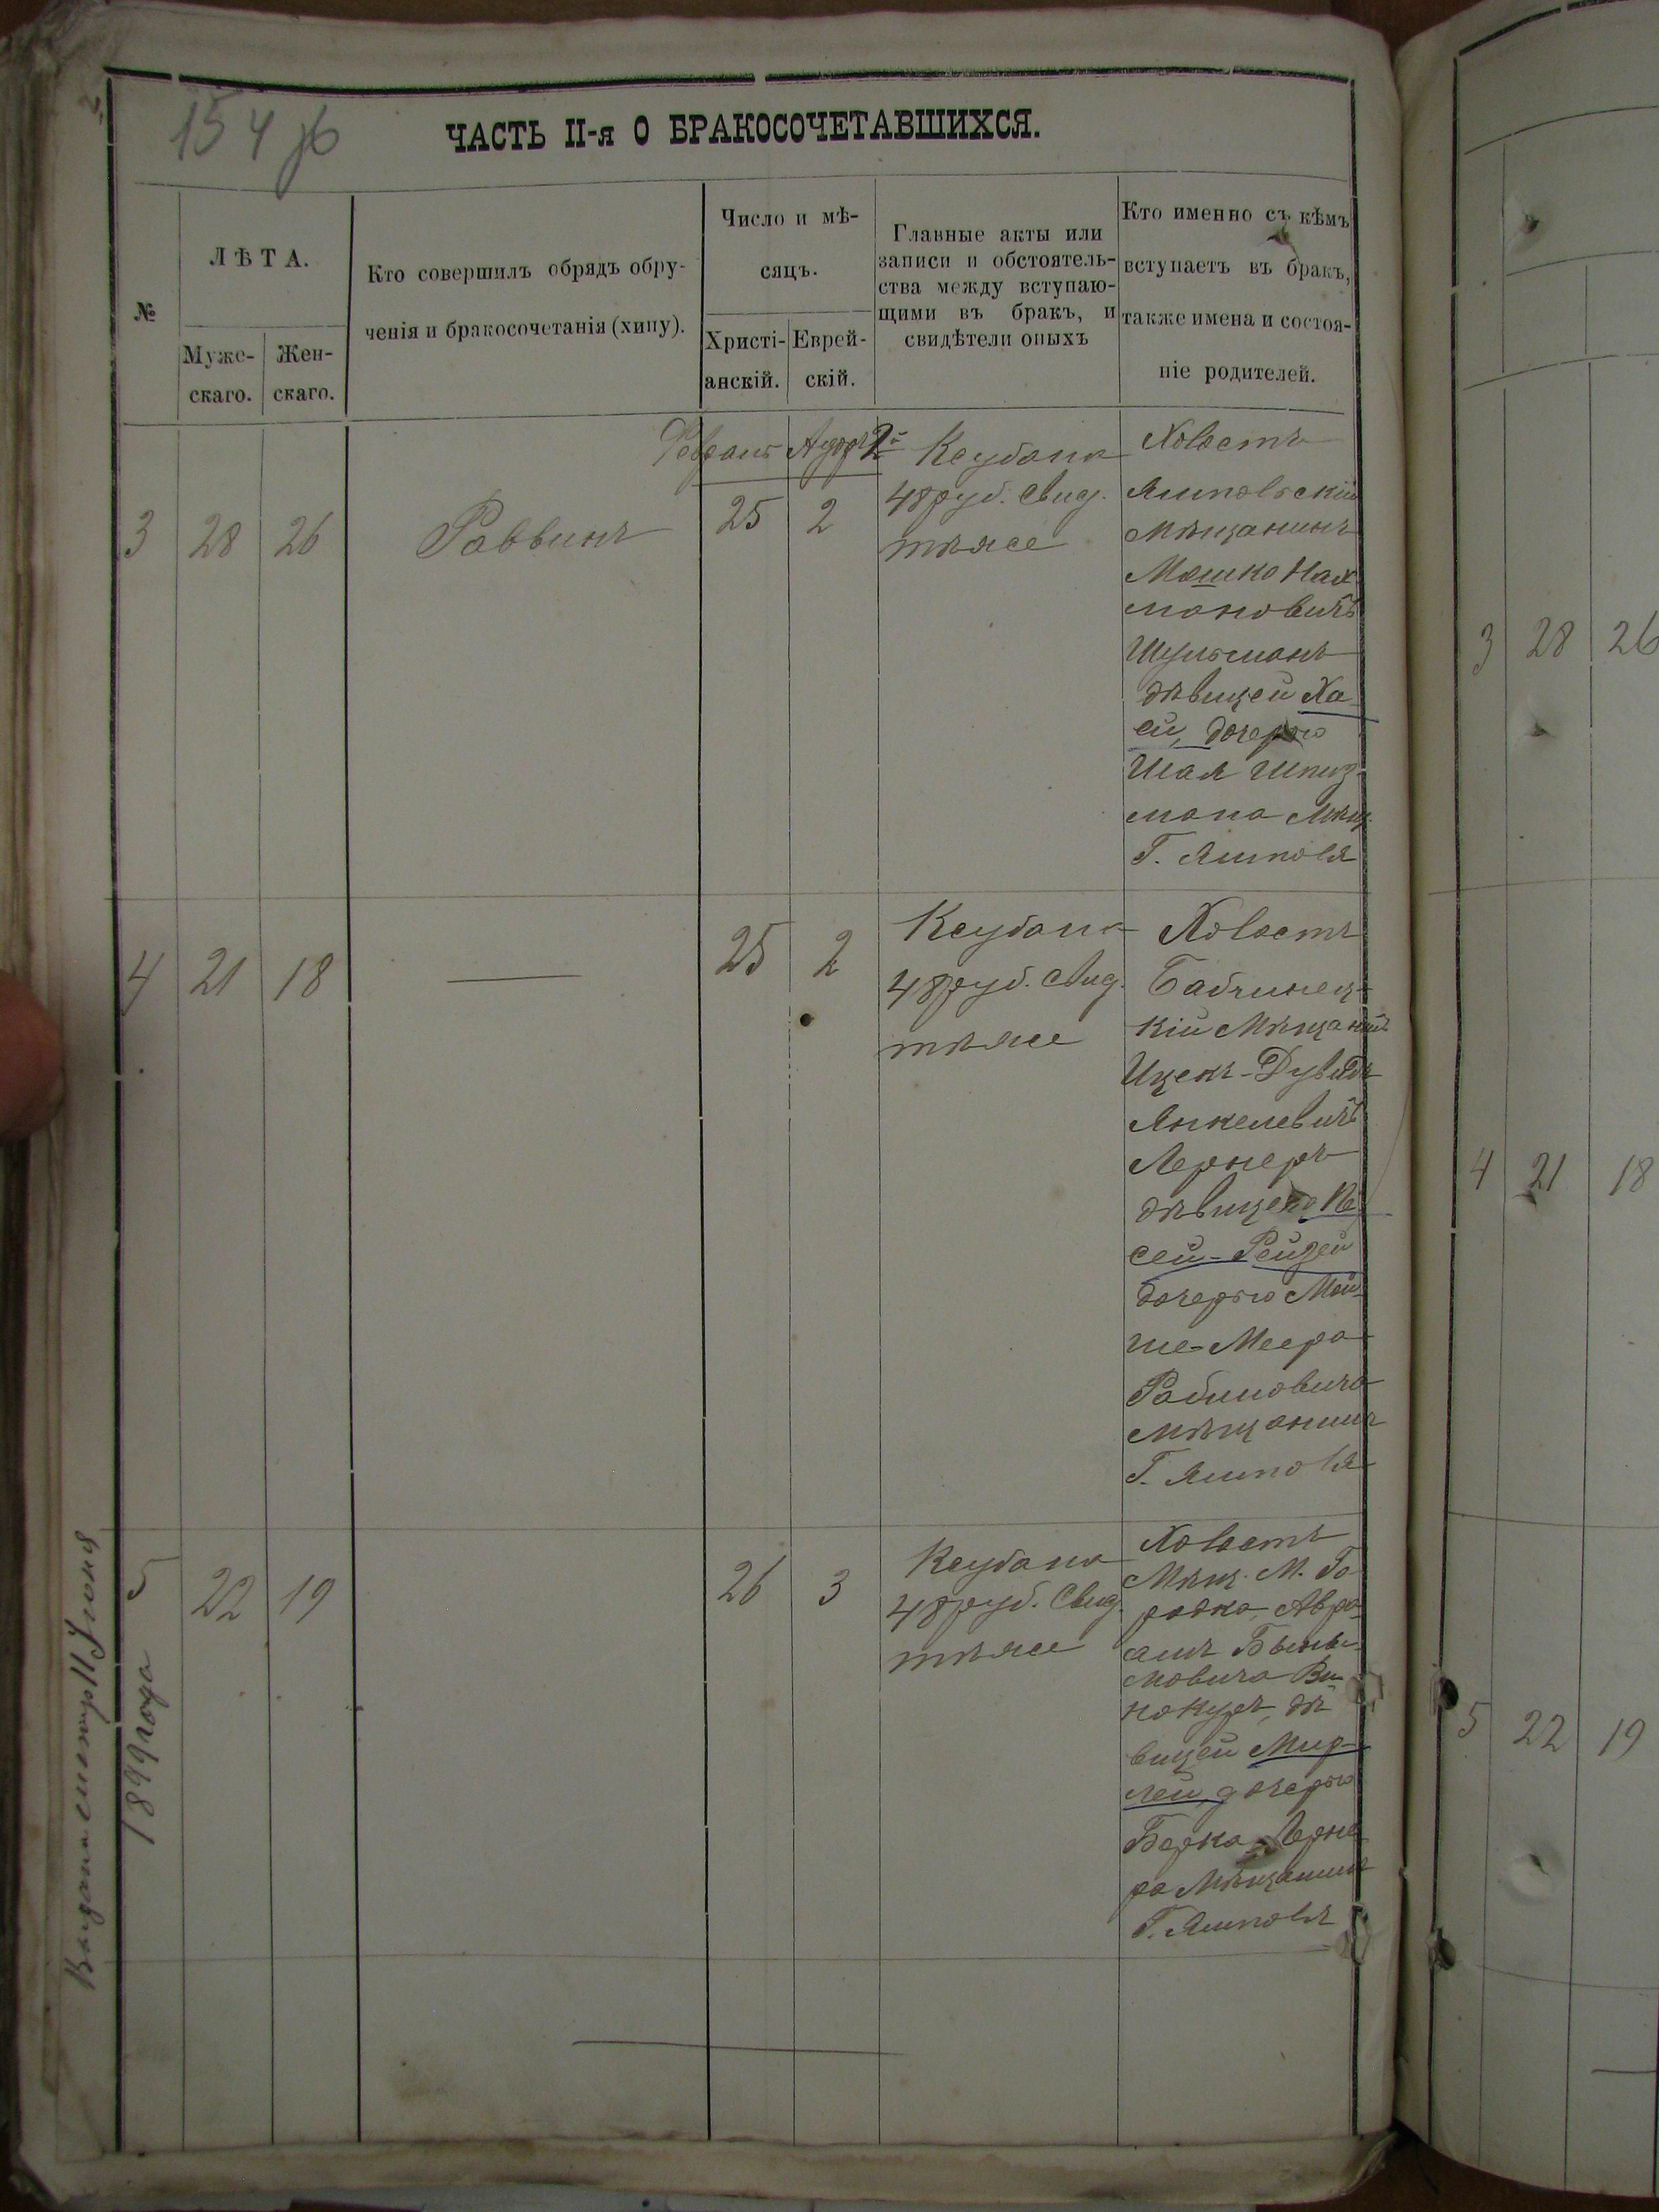 154 об
ЧАСТЬ II-я О БРАКОСОЧЕТАВШИХСЯ.
№
ЛѢТА.
Муже-
скаго.
Жен-
скаго.
Кто совершилъ обрядъ обру-
ченія и бракосочетанія (хипу).
Число и мѣ-
сяцъ.
Христі-
анскій.
Еврей-
скій.
Главные акты или
записи и обстоятель-
ства между вступаю-
щими въ бракъ, и
свидѣтели оныхъ
Кто именно съ кѣмъ
вступаетъ въ бракъ,
также имена и состоя-
ніе родителей.
Февраль Адаръ 2й
3 28 26 Раввинъ 25 2
Ксубана
48 руб. свид.
тѣже
Холостъ
Ямпольскій
мѣщанинъ
Мошко Нах-
мановичъ
Шульманъ
дѣвицей Ха-
ей, дочерью
Шая Шпиз-
мана мѣщ.
г. Ямполя
4 21 18 — 25 2
Ксубана
48 руб. свид.
тѣже
Холостъ
Бабчинец-
кій мѣщанинъ
Ицекъ-Дувидъ
Янкелевичъ
Лернеръ
сей-Рейзей
дочерью Мой-
ше-Меера
Рабиновича
мѣщанина
г. Ямполя
5 22 19 26 3
Ксубана
48 руб. свид.
тѣже
Холостъ
мѣщ. м. Го-
родка, Авра-
амъ
новича Ви-
нокуръ, дѣ-
вицей Мир-
лей, дочерью
Берка Лерне-
ра мѣщанина
г. Ямполя
1899 года
3 28 26
4 21 18
5 22 19